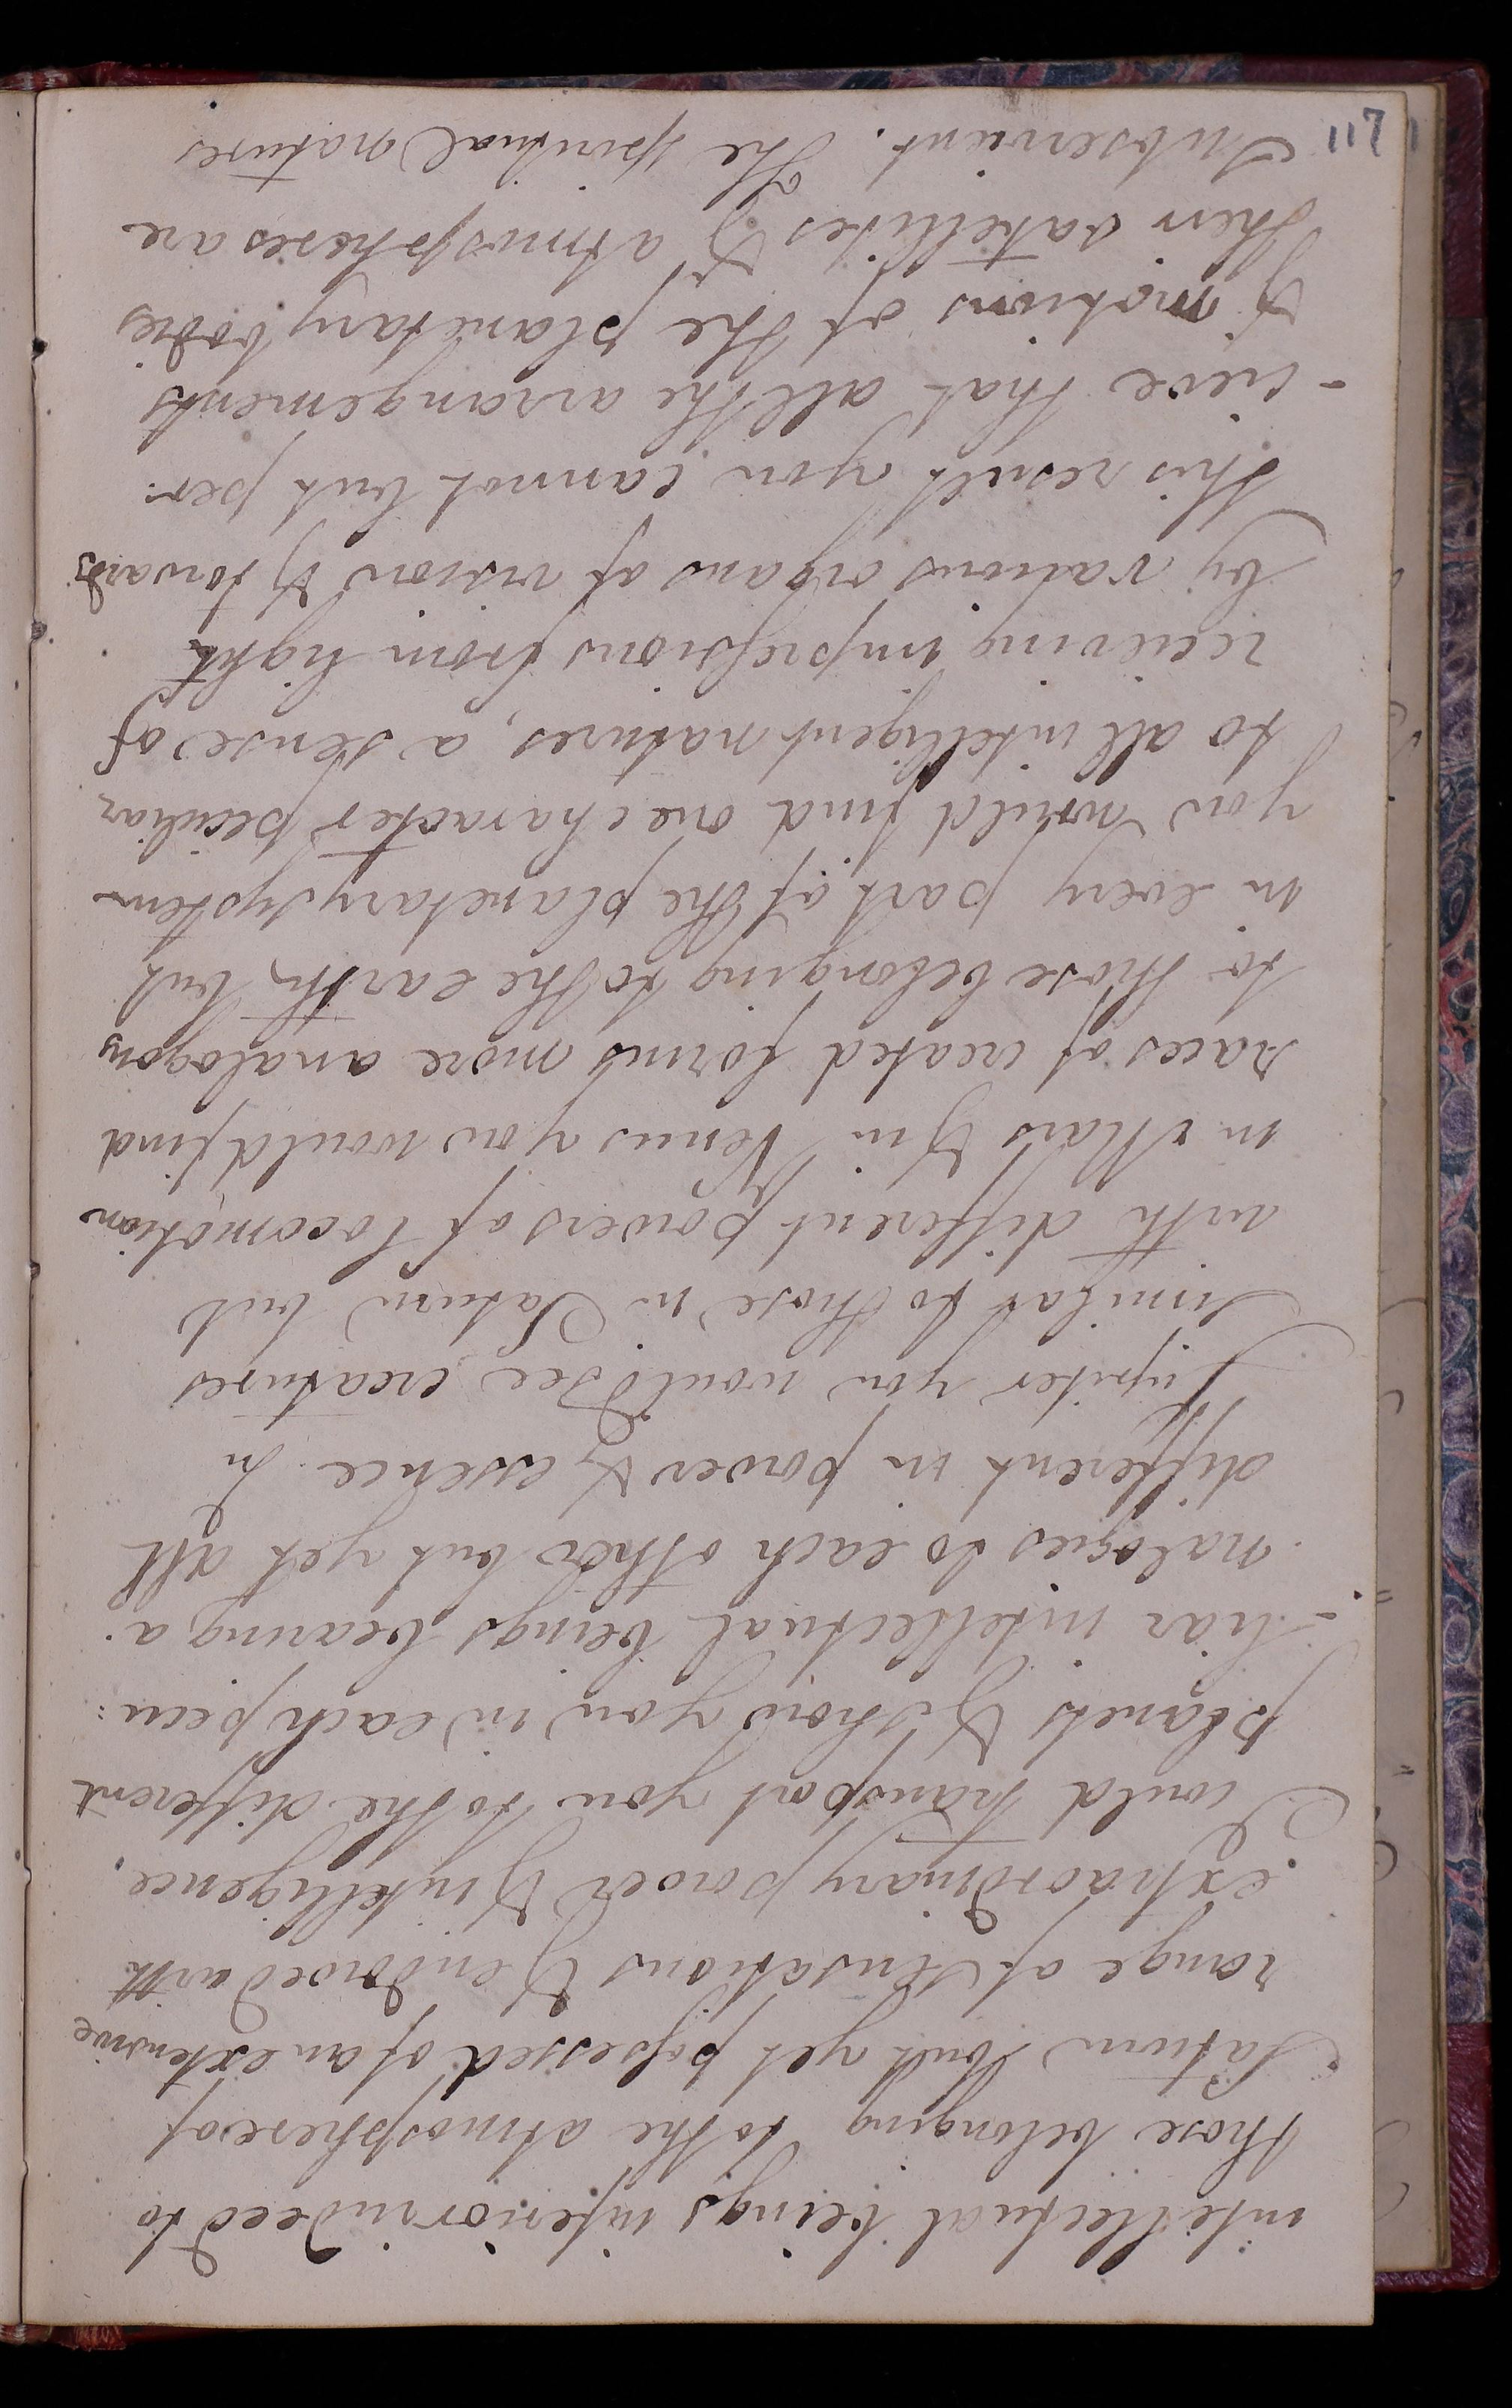 intellectual beings inferior indeed to
those belonging to the atmosphere of
Saturn but yet possessed of an extensive
range of sensations & endowed with
extraordinary power & intelligence.
I could transport you to the different
planets & show you in each pecu:
-liar intellectual beings bearing a.
nalogies to each other but yet all
different in power & essence. In
Jupiter you would see creatures
similar to those in Saturn but
with different powers of locomotion
in Mars & in Venus you would find
races of created forms more analogous
to those belonging to the earth, but
in every part of the planetary system
you would find one character peculiar
to all intelligent natures, a sense of
recieving impressions from light
by various organs of vision & towards
this result you cannot but per:
-cieve that all the arrangements
& motions of the planetary bodies
their satellites & atmospheres are
Subservient. The spiritual natures
117